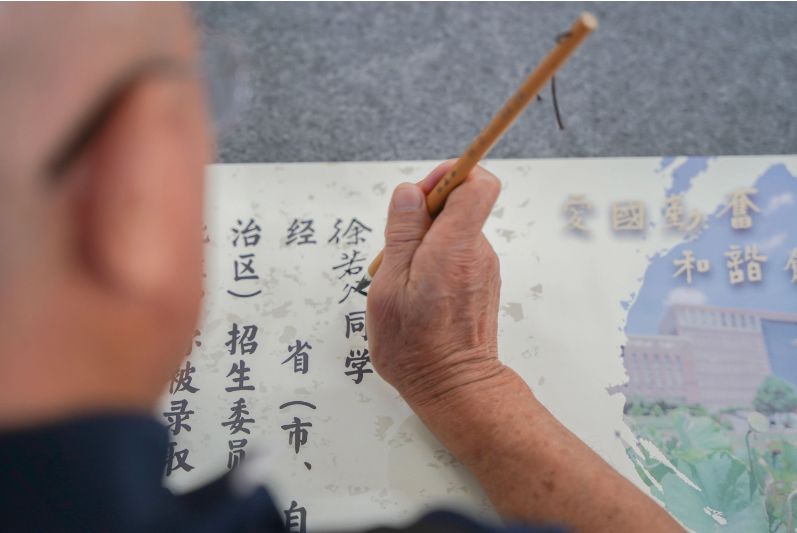 愛國勤奮
和諧
徐若 同学
经 省（市、自
治区）招生委员
被录取